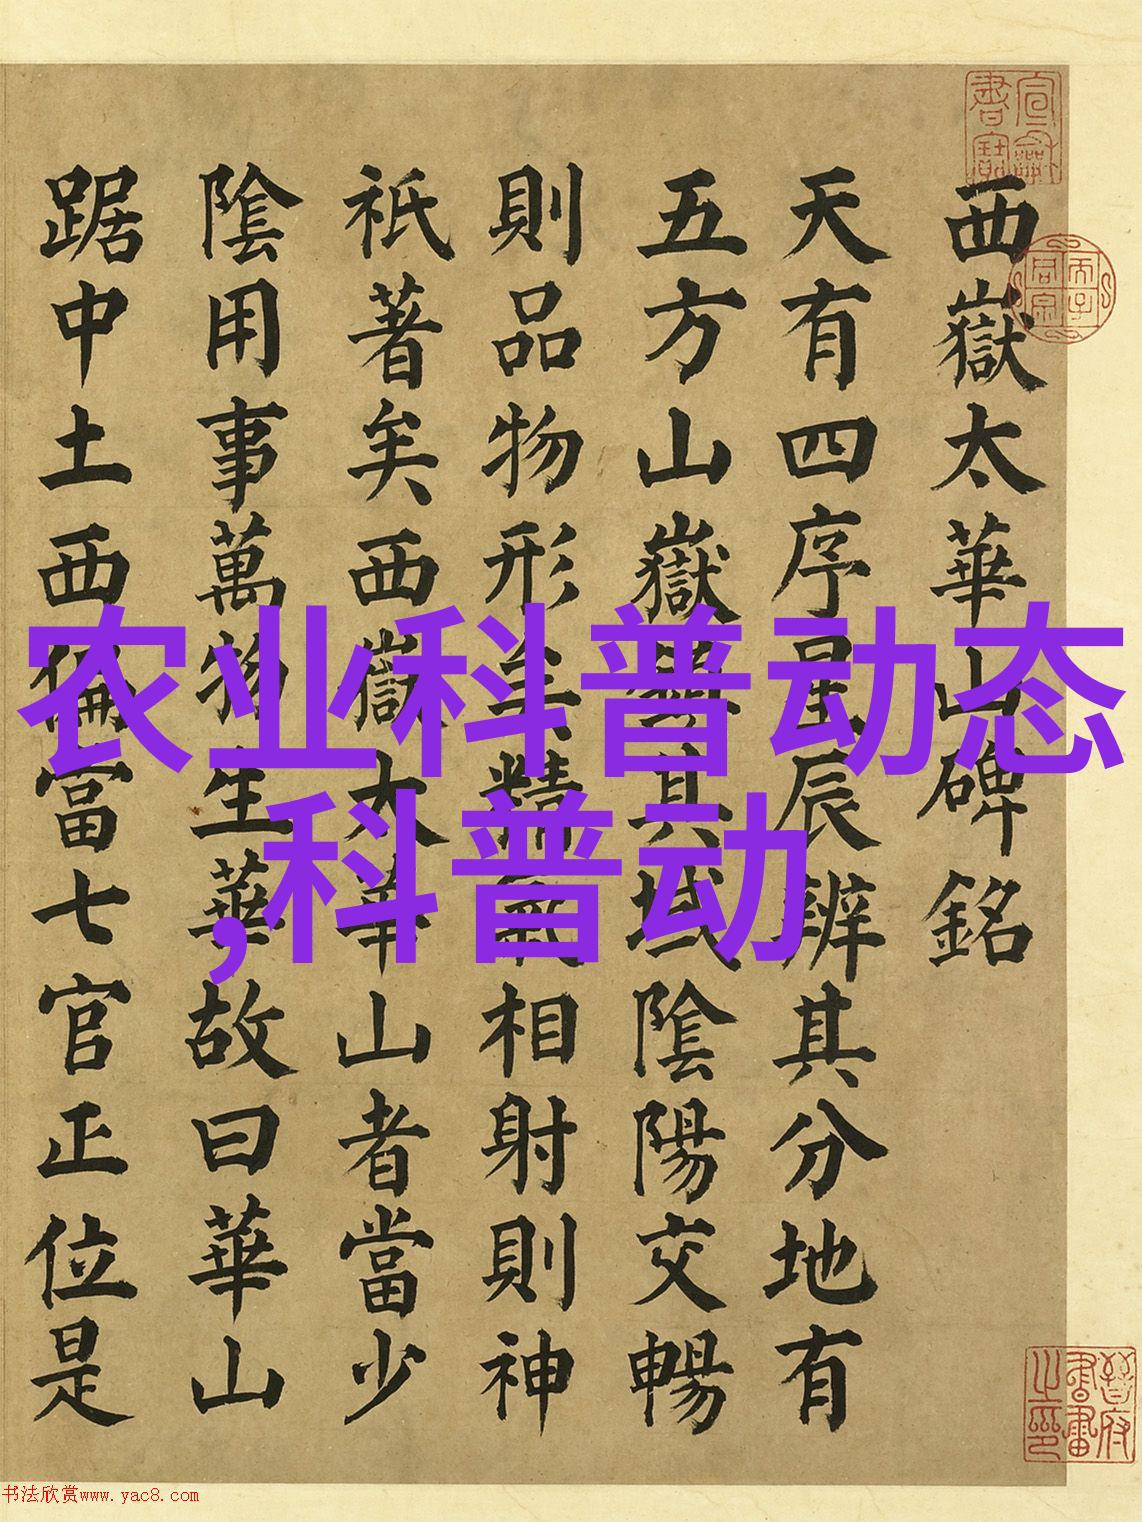 西嶽太華山碑銘
天有四序星辰辨其分地有
五方山嶽鎮其域陰陽交暢
則品物形焉精氣相射則神
祇著矣西嶽太華山者當少
陰用事萬物生華故曰華山
踞中土西偏當七宿正位是
农业科普动态
,科普动
书法欣赏www.yac8.com